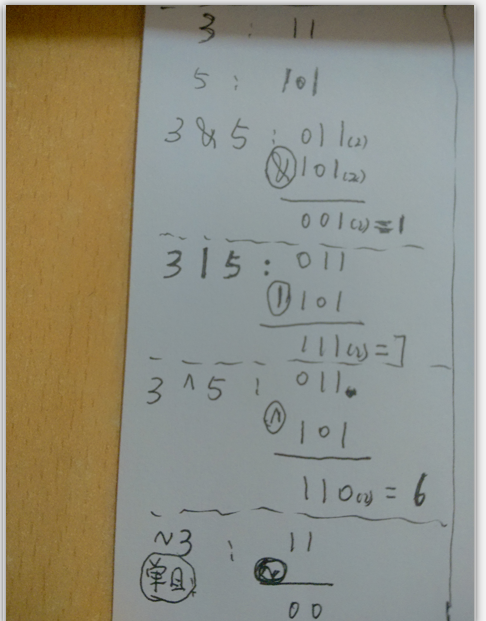 3 : 11
5 : 101
3 & 5 : 011(2)
& 101(2)
001(2) = 1
3 | 5 : 011
| 101
111(2) = 7
3 ^ 5 : 011
^ 101
110(2) = 6
~3 : 11
单目 ~
00